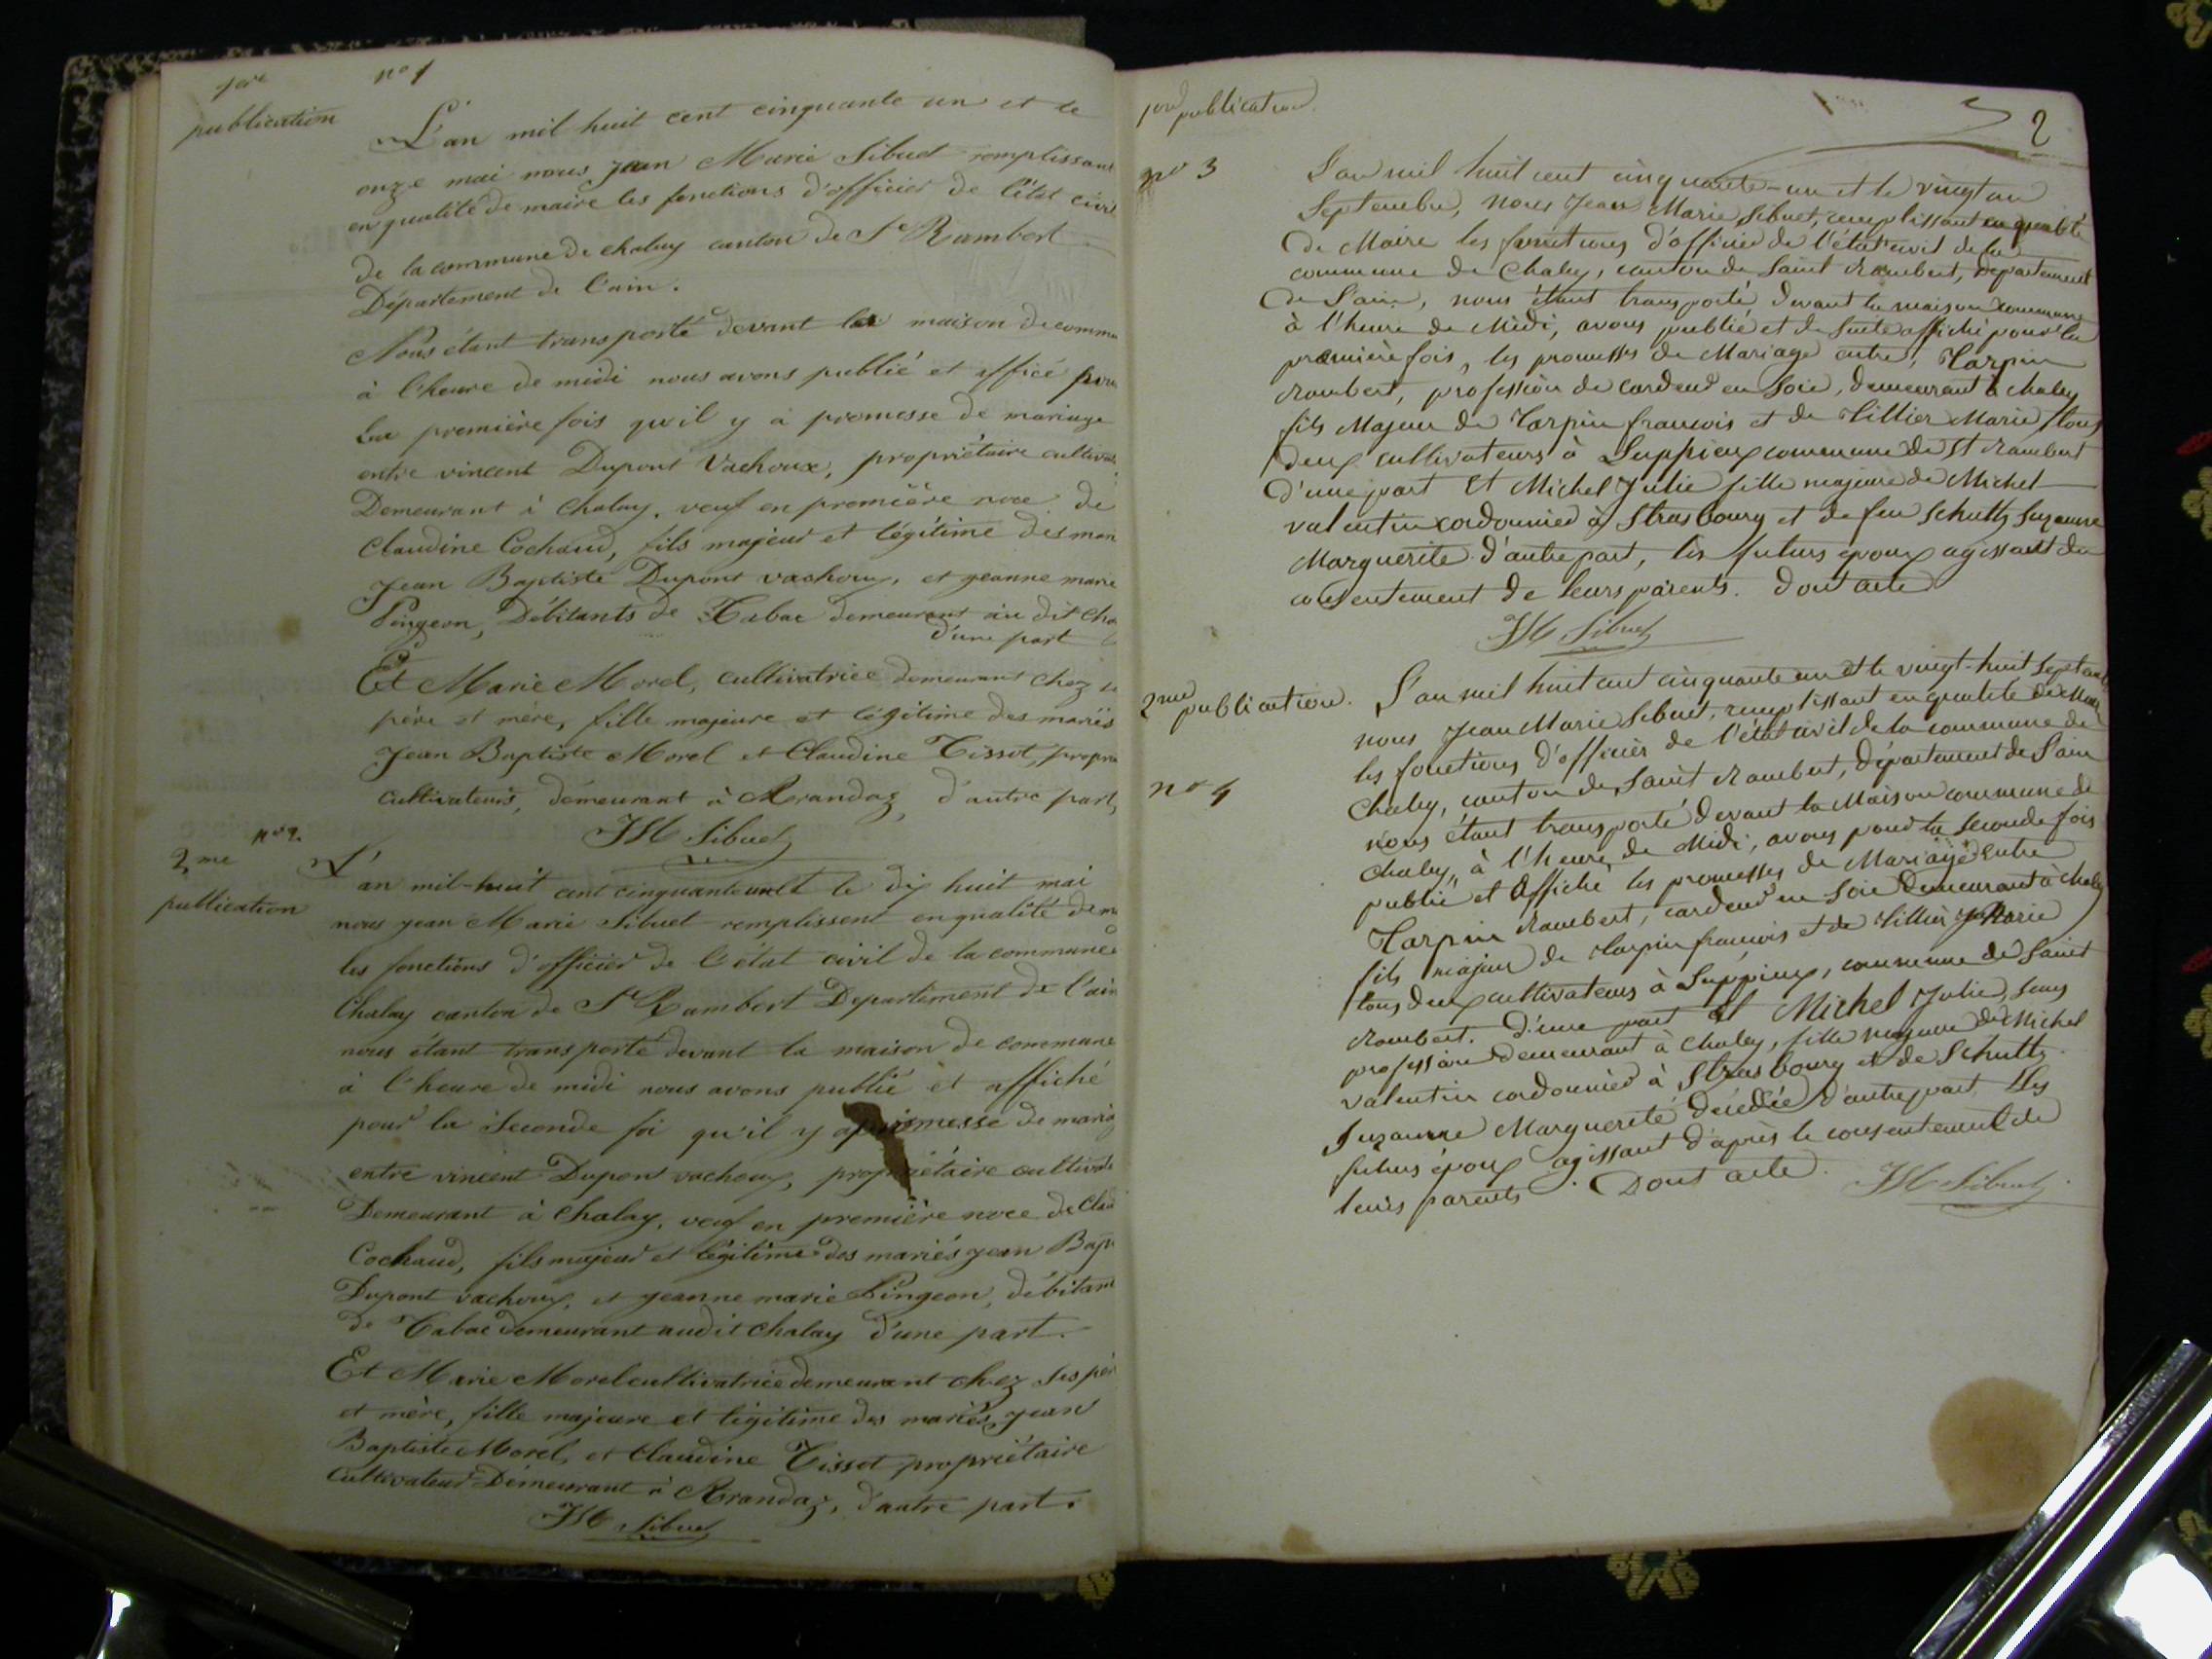 1ere
publication
n° 1
L'an mil huit cent cinquante un et le
onze mai nous Jean Marie Sibuet remplissant
en qualité de maire les fonctions d'officier de l'état civil
de la commune de chaley canton de St Rambert
Département de l'ain.
Nous étant transporté devant la maison de commu
à l'heure de midi nous avons publié et afficé pour
la première fois qu'il y a promesse de mariage
entre vincent Dupont Vachoux, propriétaire cultivat
Demeurant à Chaley, veuf en première noce de
Claudine Cochaud, fils majeur et légitime des mari
Jean Baptiste Dupont vachoux, et jeanne marie
Pingeon, Débitants de Tabac demeurant au dit cha
d'une part
Et Marie Morel, cultivatrice demeurant chez se
père et mère, fille majeure et légitime des mariés
Jean Baptiste Morel et Claudine Tissot, propri
cultivateurs, demeurant à Arandaz, d'autre part,
JM Sibuet
n° 2.
2me
publication
L'an mil-huit cent cinquante un et le dix huit mai
nous jean Marie Sibuet remplissent en qualité de m
les fonctions d'officier de l'état civil de la commune
Chaley canton de St Rambert Departement de l'ain
nous étant transporté devant la maison de commune
à l'heure de midi nous avons publié et affiché
pour la seconde foi qu'il y a promesse de maria
entre vincent Dupont vachoux, propriétaire cultivate
Demeurant à Chaley, veuf en première noce de Clau
Cochaud, fils majeur et légitime des mariés jean Bap
Dupont vachoux, et jeanne marie Pingeon, débitant
de Tabac demeurant audit chaley d'une part.
Et Marie Morel cultivatrice demeurant chez ses pèr
et mère, fille majeure et légitime des mariés jean
Baptiste Morel, et Claudine Tissot propriétaire
Cultivateur Demeurant à Arandaz, d'autre part.
JM Sibuet
2
1ere publication.
n° 3
L'an mil huit cent cinquante-un et le vingt un
Septembre, nous Jean Marie Sibuet, remplissant en qualité
de Maire les fonctions d'officier de l'état civil de la
commune de Chaley, canton de Saint Rambert, département
de l'ain, nous étant transporté devant la maison commune
à l'heure de Midi, avons publié et de suite affiché pour la
première fois, les promesses de Mariage entre, Tarpin
Rambert, profession de cardeur en soie, demeurant à chaley
fils Majeur de Tarpin francois et de Tillier Marie, tous
deux cultivateurs à Suppieux commune de St Rambert
d'une part Et Michel Julie fille majeure de Michel
valentin cordonnier à Strasbourg et de feu Schultz Suzanne
Marguerite d'autre part, les futurs époux agissant du
consentement de leurs parents. Dont acte
JM Sibuet
2me publication.
n° 4
L'an mil huit cent cinquante un et le vingt-huit Septemb
nous Jean Marie Sibuet, remplissant en qualité de Maire
les fonctions d'officier de l'état civil de la commune de
Chaley, canton de Saint Rambert, département de l'ain
nous étant transporté devant la Maison commune de
Chaley, à l'heure de Midi, avons pour la seconde fois
publié et affiché les promesses de Mariage entre
Tarpin Rambert, cardeur en soie demeurant à Chaley
fils majeur de Tarpin francois et de Tillier Marie
tous deux cultivateurs à Suppieux, commune de Saint
Rambert. d'une part et Michel Julie, sans
profession demeurant à Chaley, fille majeure de Michel
valentin cordonnier à Strasbourg et de Schultz
Suzanne Marguerite décédée d'autre part. Les
futurs époux agissant d'après le consentement de
leurs parents. Dont acte.
JM Sibuet